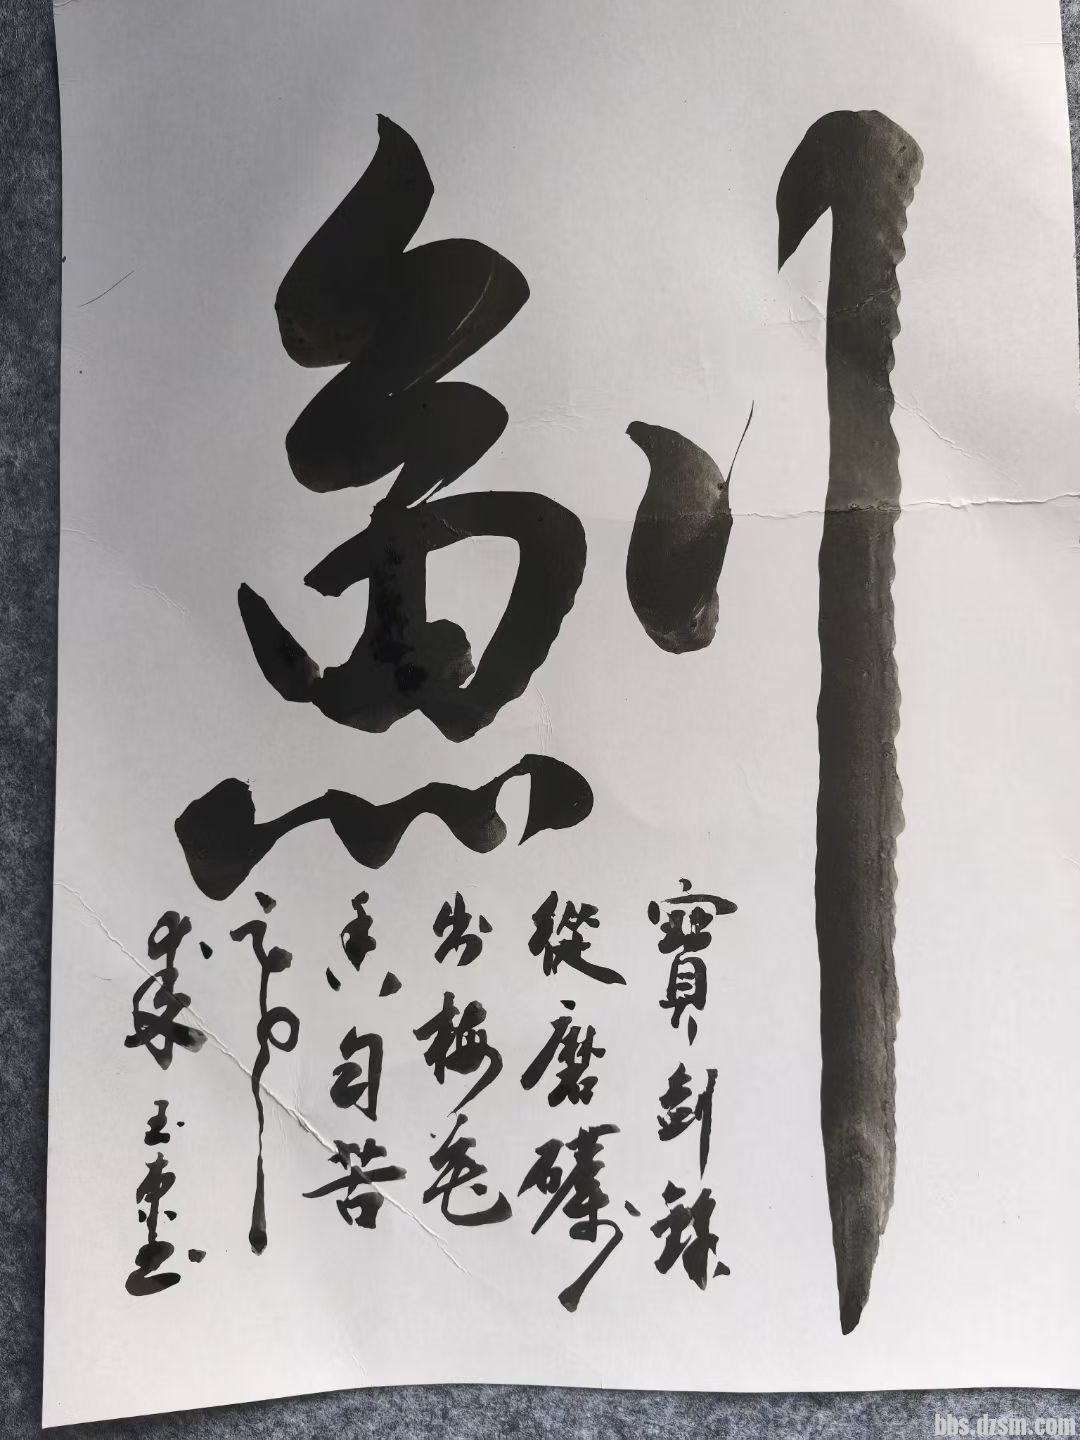 劍
寶劍鋒
從磨礪
出梅花
香自苦
寒
來 玉東書
bbs.dzsm.com